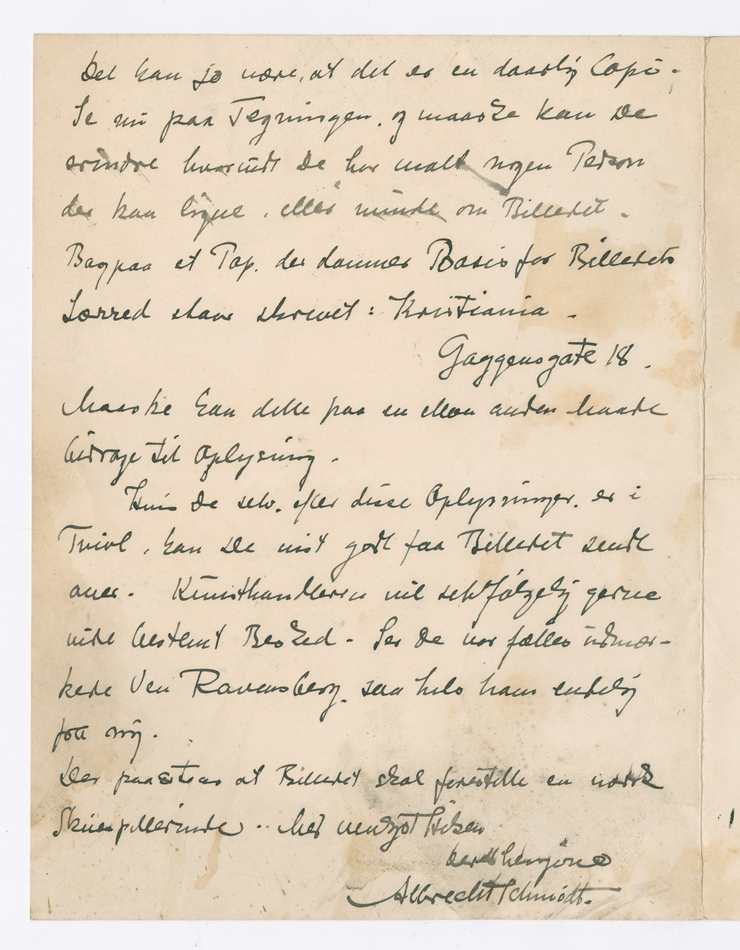 Det kan jo være, at det er en daarlig Copi.
Se nu paa Tegningen, og maaske kan De
erindre hvorvidt De har malt nogen Person
der kan ligne, eller minde om Billedet.
Bagpaa et Pap. der danner Basis for Billedets
Lærred staar skrevet: Kristiania.
Gaggensgate 18.
Maaske kan dette paa en eller anden Maade
bidrage til Oplysning.
Hvis De selv, efter disse Oplysninger, er i
Tvivl, kan De vist godt faa Billedet sendt
over. Kunsthandleren vil selvfølgelig gerne
vide bestemt Besked - Ser De vor fælles udmær-
kede Ven Ravensberg, saa hils ham endelig
fra mig.
Der paastaas at Billedet skal forestille en norsk
Skuespillerinde. Med venligst Hilsen
Deres hengivne
Albrecht Schmidt.